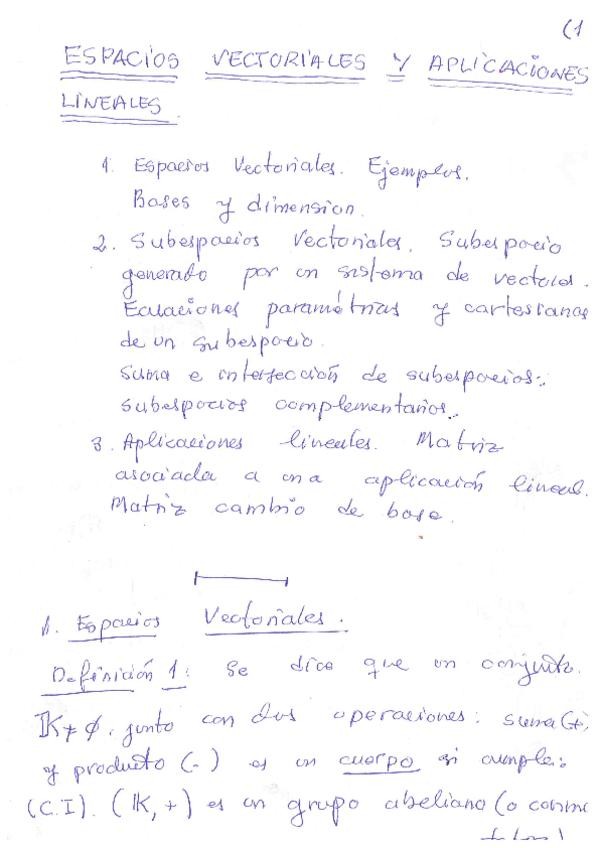 (1
ESPACIOS VECTORIALES Y APLICACIONES
LINEALES.
1. Espacios Vectoriales. Ejemplos.
Bases y dimension.
2. Subespacios Vectoriales. Subespacio
generado por un sistema de vectores.
Ecuaciones paramétricas y cartesianas
de un subespacio.
Suma e intersección de subespacios.
Subespacios complementarios.
3. Aplicaciones lineales. Matriz
asociada a una aplicación lineal.
Matriz cambio de base.
1. Espacios Vectoriales.
Definición 1: Se dice que un conjunto
𝕂≠∅, junto con dos operaciones: suma (+)
y producto (·) es un cuerpo si cumple:
(C.I). (𝕂, +) es un grupo abeliano (o conmu